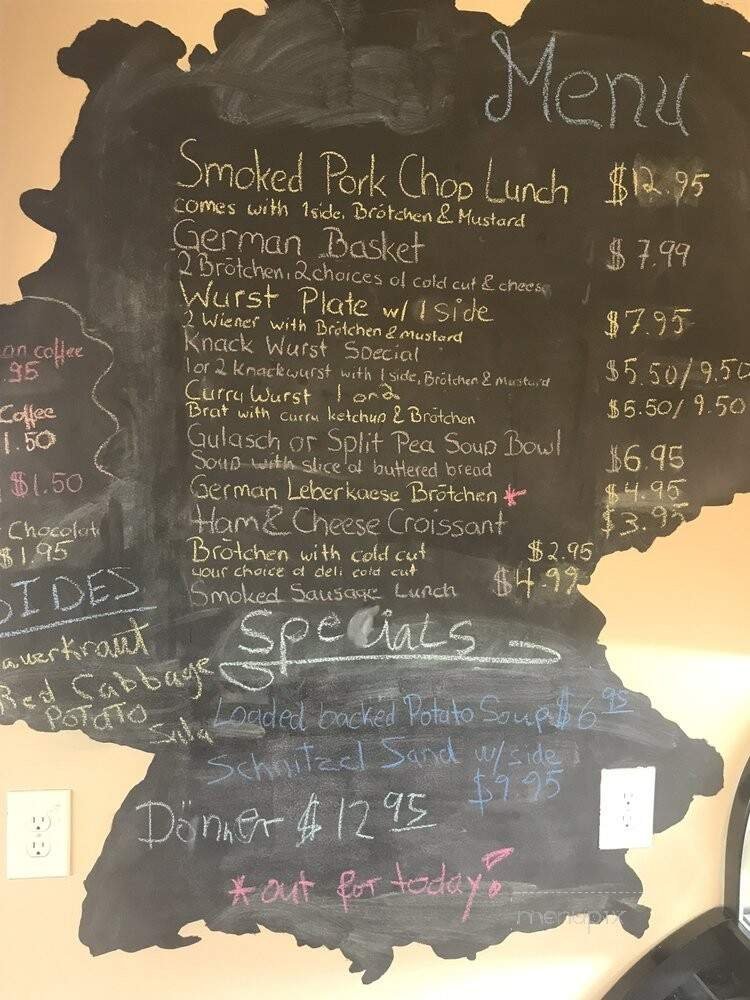 Menu
Smoked Pork Chop Lunch $12.95
comes with 1side, Brötchen & Mustard
German Basket $7.99
2 Brötchen, 2 choices of cold cut & chees
Wurst Plate w/ 1 side $7.95
2 Wiener with Brötchen & Mustard
Knack Wurst Special $5.50/9.50
1 or 2 Knackwurst with 1 side, Brötchen & Mustard
Curry Wurst 1 or 2 $5.50/9.50
Brat with curry ketchup & Brötchen
Gulasch or Split Pea Soup Bowl $6.95
Soup with slice of buttered bread
German Leberkaese Brötchen * $4.95
Ham & Cheese Croissant $3.95
Brötchen with cold cut $2.95
your choice of deli cold cut
Smoked Sausage Lunch $4.99
an coffee
.95
Coffee
1.50
$1.50
Chocolat
$1.95
SIDES
auerkraut
Red Cabbage
Potato
Sala
Specials
Loaded backed Potato Soup $6.95
Schnitzel Sand w/side
$9.95
Dönner $12.95
*out for today!
menupix